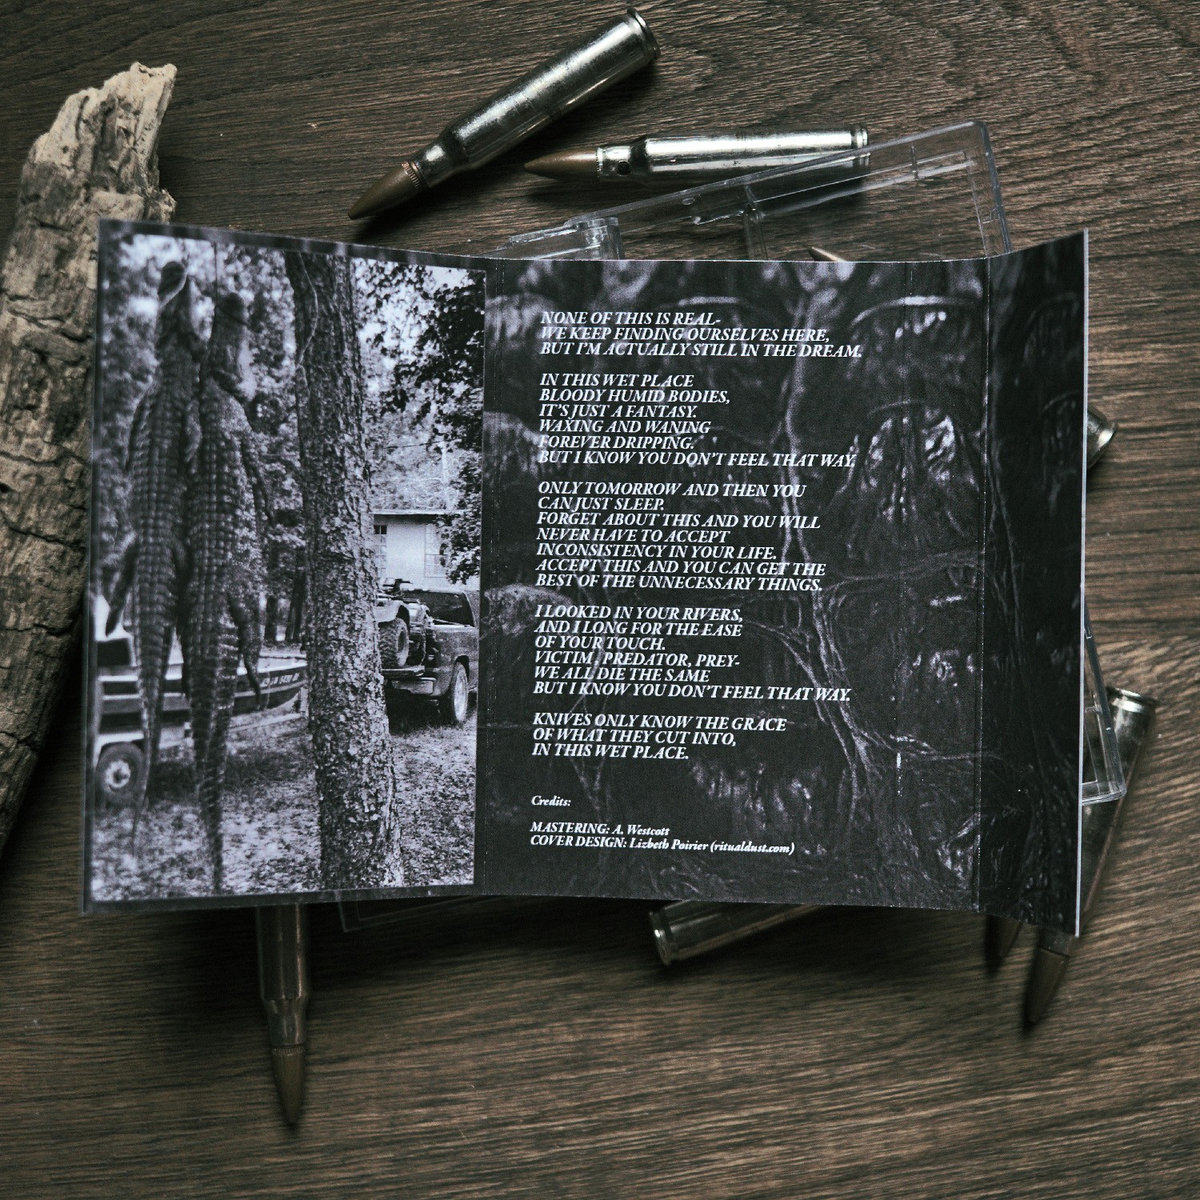 NONE OF THIS IS REAL-
WE KEEP FINDING OURSELVES HERE,
BUT I'M ACTUALLY STILL IN THE DREAM.
IN THIS WET PLACE
BLOODY HUMID BODIES,
IT'S JUST A FANTASY.
WAXING AND WANING
FOREVER DRIPPING.
BUT I KNOW YOU DON'T FEEL THAT WAY.
ONLY TOMORROW AND THEN YOU
CAN JUST SLEEP.
FORGET ABOUT THIS AND YOU WILL
NEVER HAVE TO ACCEPT
INCONSISTENCY IN YOUR LIFE.
ACCEPT THIS AND YOU CAN GET THE
BEST OF THE UNNECESSARY THINGS.
I LOOKED IN YOUR RIVERS,
AND I LONG FOR THE EASE
OF YOUR TOUCH.
VICTIM, PREDATOR, PREY-
WE ALL DIE THE SAME
BUT I KNOW YOU DON'T FEEL THAT WAY.
KNIVES ONLY KNOW THE GRACE
OF WHAT THEY CUT INTO,
IN THIS WET PLACE.
Credits:
MASTERING: A. Westcott
COVER DESIGN: Lizbeth Poirier (ritualdust.com)